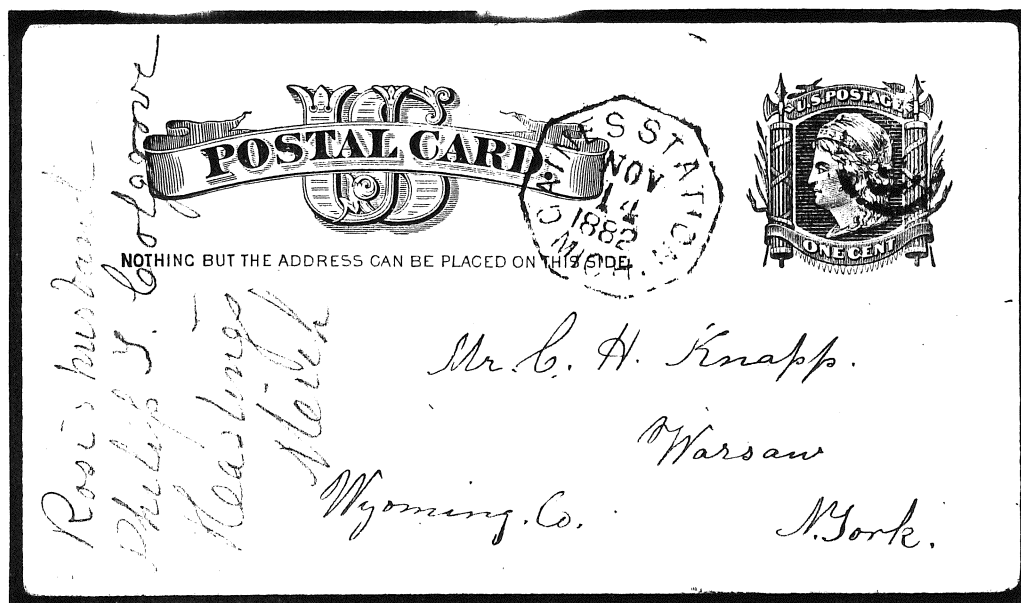 US
POSTAL CARD
NOTHING BUT THE ADDRESS CAN BE PLACED ON THIS SIDE.
GAINES STATION
NOV
14
1882
MICH.
U.S. POSTAGE
ONE CENT
Mr. C. H. Knapp.
Warsaw
Wyoming. Co.
N. York.
Rosi's husband
Philip T. Colgrove
Hastings
Mich